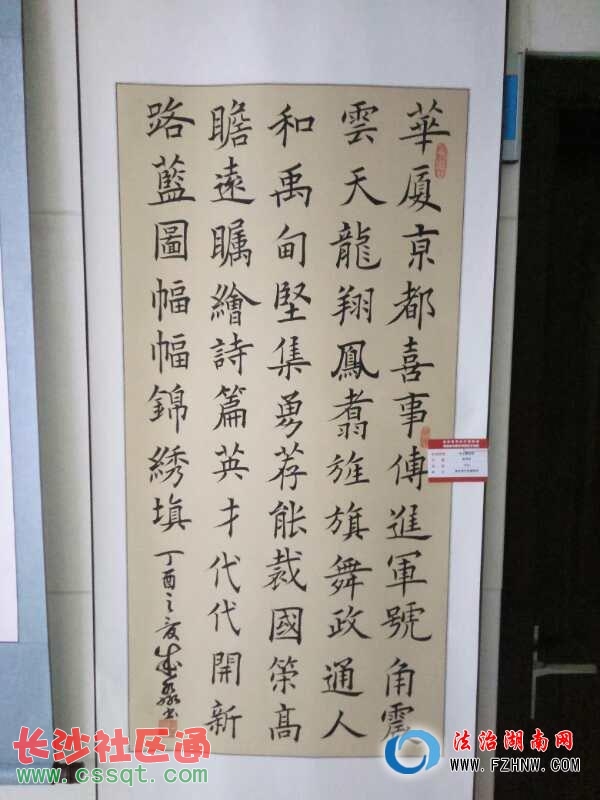 華厦京都喜事傳進軍號角震
雲天龍翔鳳翥旌旗舞政通人
和禹甸堅集勇荐能裁國策高
瞻遠矚繪詩篇英才代代開新
路藍圖幅幅錦綉填
丁酉之夏
长沙社区通
www.cssqt.com
法治湖南网
www.FZHNW.com